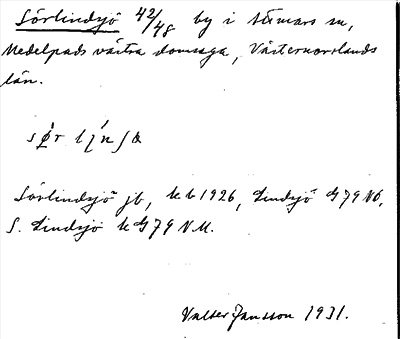 Sörlindsjö 42/48 by i Attmars sn,
Medelpads västra domsaga, Västernorrlands
län.
Sörlindsjö jb, kb 1926, Lindsjö G79 NÖ,
S. Lindsjö k G79 NM.
Valter Jansson 1931.